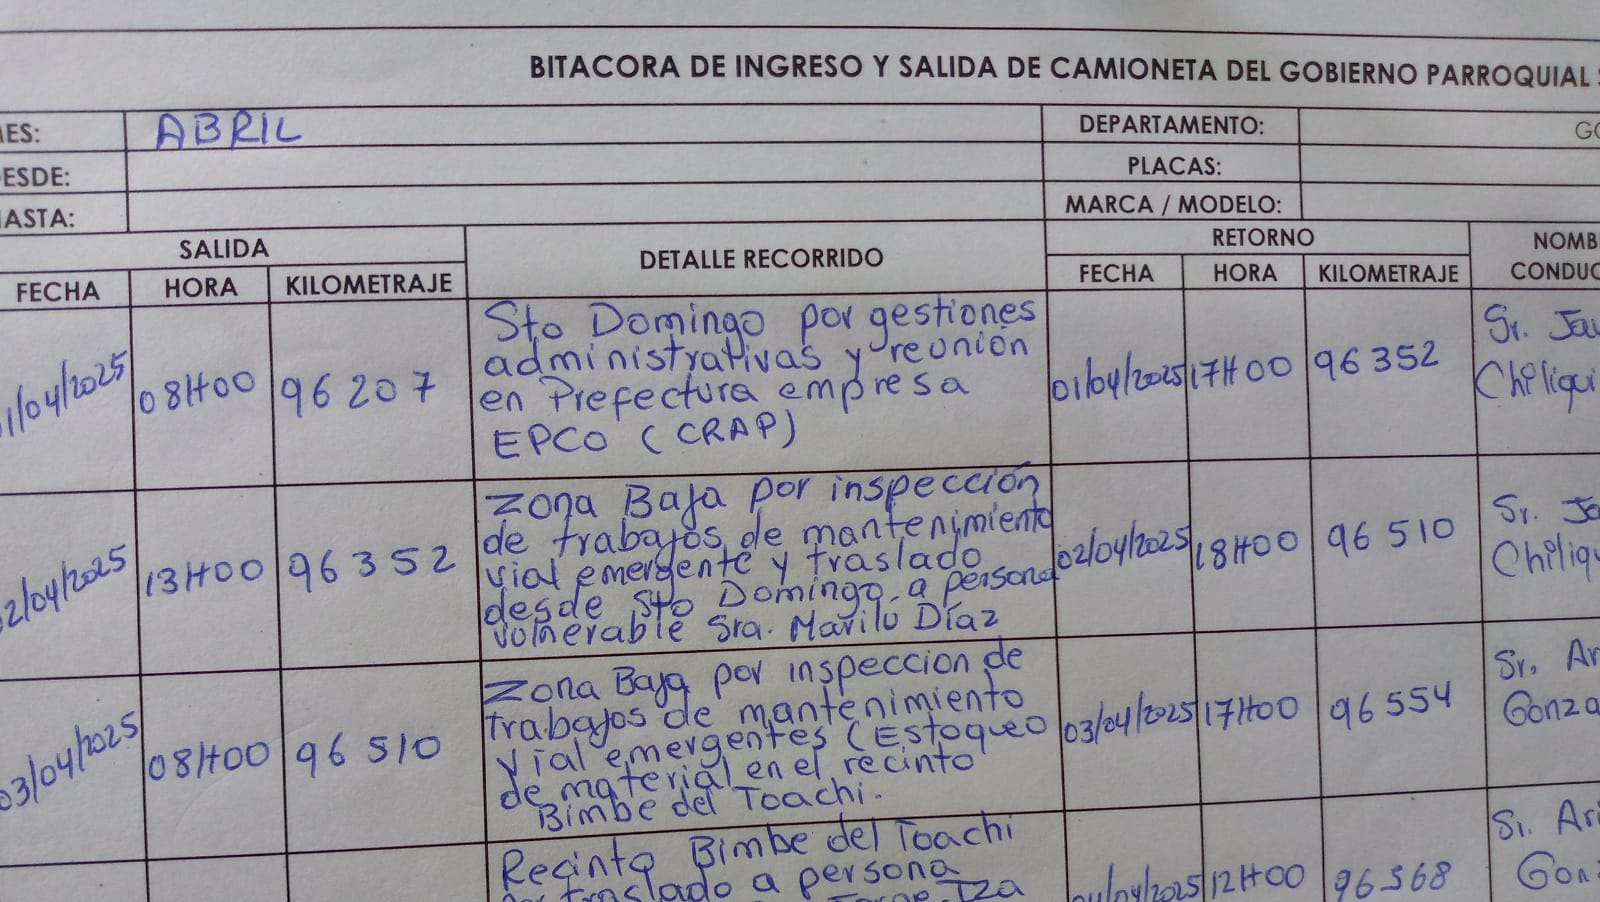 BITACORA DE INGRESO Y SALIDA DE CAMIONETA DEL GOBIERNO PARROQUIAL
MES: ABRIL DEPARTAMENTO: GO
DESDE: PLACAS:
HASTA: MARCA / MODELO:
SALIDA DETALLE RECORRIDO RETORNO NOMB
FECHA HORA KILOMETRAJE FECHA HORA KILOMETRAJE CONDUC
01/04/2025 08H00 96 207
Sto Domingo por gestiones
administrativas y reunión
en Prefectura empresa
EPCO (CRAP)
01/04/2025 17H00 96 352
Sr. Jav
Chiliqui
02/04/2025 13H00 96 352
Zona Baja por inspección
de trabajos de mantenimiento
vial emergente y traslado
desde Sto Domingo a persona
vulnerable Sra. Marilú Díaz
02/04/2025 18H00 96 510
Sr. Ja
Chiliqu
03/04/2025 08H00 96 510
Zona Baja por inspeccion de
trabajos de mantenimiento
vial emergentes (Estoqueo
de material en el recinto
Bimbe del Toachi.
03/04/2025 17H00 96 554
Sr. Ar
Gonza
Recinto Bimbe del Toachi
traslado a persona
Jorge Iza
04/04/2025 12H00 96568
Sr. Ari
Gon